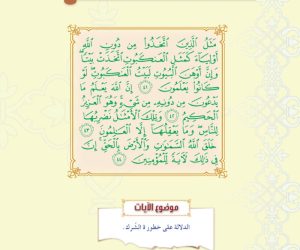 مَثَلُ الَّذِينَ اتَّخَذُوا مِن دُونِ اللَّهِ
أَوْلِيَاءَ كَمَثَلِ الْعَنكَبُوتِ اتَّخَذَتْ بَيْتًا
وَإِنَّ أَوْهَنَ الْبُيُوتِ لَبَيْتُ الْعَنكَبُوتِ لَوْ
كَانُوا يَعْلَمُونَ ٤١ إِنَّ اللَّهَ يَعْلَمُ مَا
يَدْعُونَ مِن دُونِهِ مِن شَيْءٍ وَهُوَ الْعَزِيزُ
الْحَكِيمُ ٤٢ وَتِلْكَ الْأَمْثَالُ نَضْرِبُهَا
لِلنَّاسِ وَمَا يَعْقِلُهَا إِلَّا الْعَالِمُونَ ٤٣
خَلَقَ اللَّهُ السَّمَاوَاتِ وَالْأَرْضَ بِالْحَقِّ إِنَّ
فِي ذَلِكَ لَآيَةً لِّلْمُؤْمِنِينَ ٤٤
موضوع الآيات
الدلالة على خطورة الشرك.